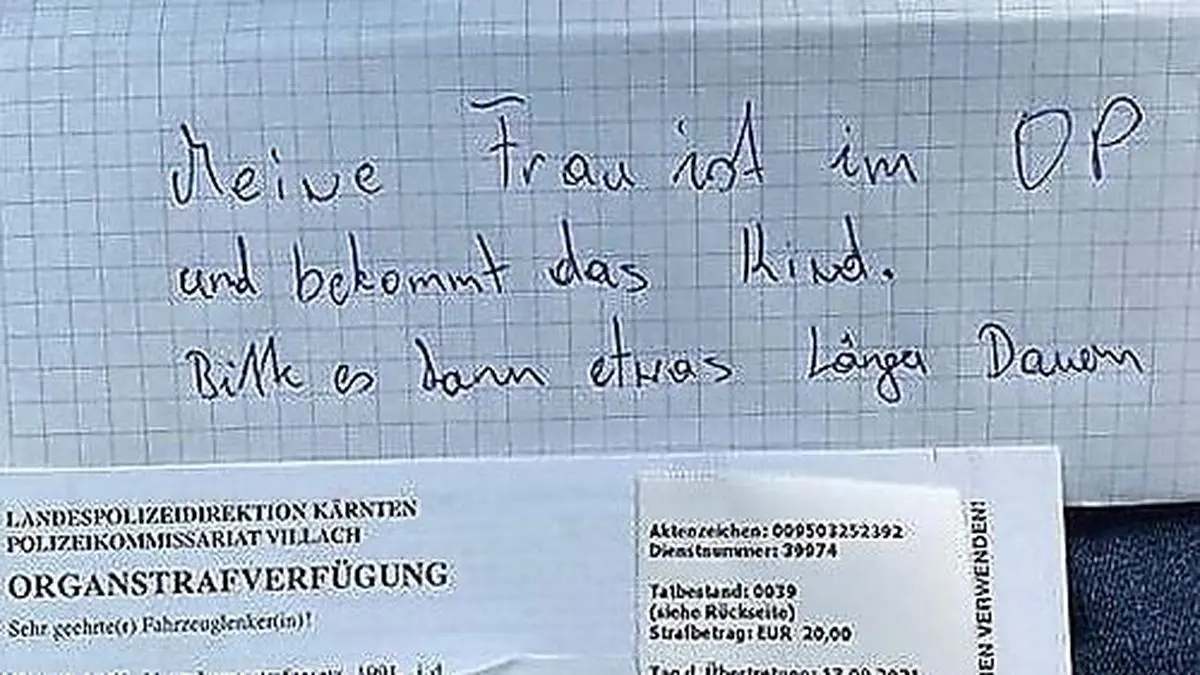 Meine Frau ist im OP
und bekommt das Kind.
Bitte es kann etwas Länger Dauern
LANDESPOLIZEIDIREKTION KÄRNTEN
POLIZEIKOMMISSARIAT VILLACH
ORGANSTRAFVERFÜGUNG
Sehr geehrte(r) Fahrzeuglenker(in)!
Aktenzeichen: 009503252392
Dienstnummer: 39974
Tatbestand: 0039
(siehe Rückseite)
Strafbetrag: EUR 20,00
Tag d. Übertretung: 13.09.2021
VERWENDEN!